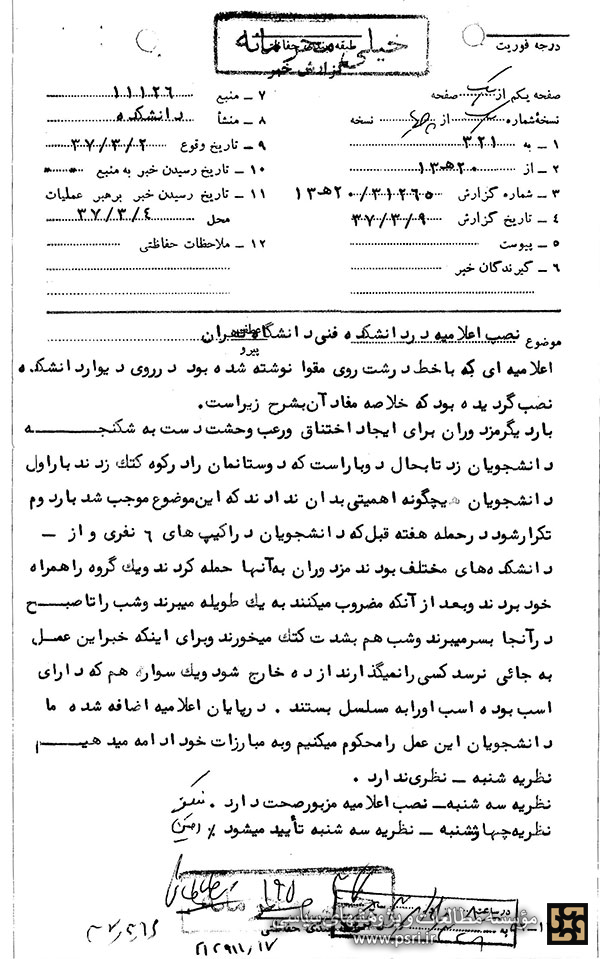 درجه فوریت
طبقه بندی حفاظتی
خیلی محرمانه
گزارش خبر
صفحه یکم از یک صفحه
نسخه شماره یک از چهار نسخه
۱ ـ به ۳۲۱
۲ ـ از ۲۰ هـ ۱۳
۳ ـ شماره گزارش ۳۱۲۶۵/ ۲۰ هـ ۱۳
۴ ـ تاریخ گزارش ۳۷/۳/۹
۵ ـ پیوست
۶ ـ گیرندگان خبر
۷ ـ منبع ۱۱۱۲۶
۸ ـ منشأ دانشکده
۹ ـ تاریخ وقوع ۳۷/۳/۲
۱۰ ـ تاریخ رسیدن خبر به منبع
۱۱ ـ تاریخ رسیدن خبر برهبر عملیات
محل ۳۷/۳/۴
۱۲ ـ ملاحظات حفاظتی
موضوع نصب اعلامیه در دانشکده فنی دانشگاه تهران
پیرو
اعلامیه ای که با خط درشت روی مقوا نوشته شده بود در روی دیوار دانشکده
نصب گردیده بود که خلاصه مفاد آن بشرح زیر است.
بار دیگر مزدوران برای ایجاد اختناق و رعب وحشت دست به شکنجــه
دانشجویان زد تابحال دوبار است که دوستانمان رادرکوه کتك زدند بار اول
دانشجویان هیچگونه اهمیتی بدان ندادند که این موضوع موجب شد بار دوم
تکرار شود در حمله هفته قبل که دانشجویان در اکیپ های ۶ نفری و از ـ
دانشکده های مختلف بودند مزدوران به آنها حمله کردند ویك گروه را همراه
خود بردند وبعد از آنکه مضروب میکنند به یك طویله میبرند وشب را تا صبــح
در آنجا بسر میبرند وشب هم بشدت کتك میخورند وبرای اینکه خبر این عمــل
به جائی نرسد کسی را نمیگذارند از ده خارج شود ویك سواره هم که دارای
اسب بوده اسب اورا به مسلسل بستند . در پایان اعلامیه اضافه شده ما
دانشجویان این عمل را محکوم میکنیم وبه مبارزات خود ادامه میدهیــم
نظریه شنبه ـ نظری ندارد .
نظریه سه شنبه ـ نصب اعلامیه مزبور صحت دارد .
نظریه چهارشنبه ـ نظریه سه شنبه تأیید میشود ٪
طبقه بندی حفاظتی
مؤسسه مطالعات و پژوهشهای سیاسی
www.psri.ir
۲۱۲۹۱۱/۱۷